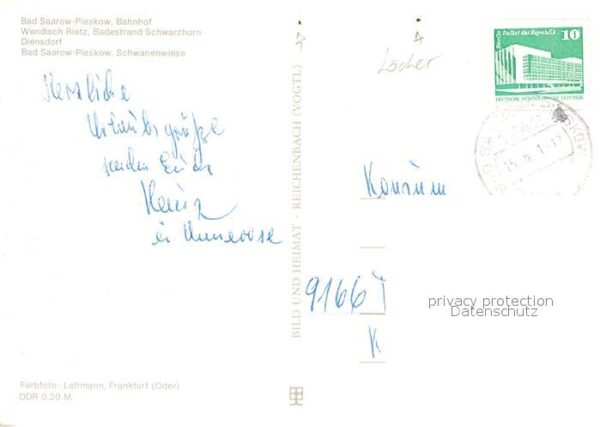 Bad Saarow-Pieskow, Bahnhof
Wendisch Rietz, Badestrand Schwarzhorn
Diensdorf
Bad Saarow-Pieskow, Schwanenwiese
Herzliche
Urlaubsgrüße
senden Euch
Heinz
Löcher
Berlin Palast der Republik
10
DEUTSCHE DEMOKRATISCHE REPUBLIK
BILD UND HEIMAT · REICHENBACH (VOGTL)
Konsum
9166
privacy protection
Datenschutz
Farbfoto: Lehmann, Frankfurt (Oder)
DDR 0,20 M